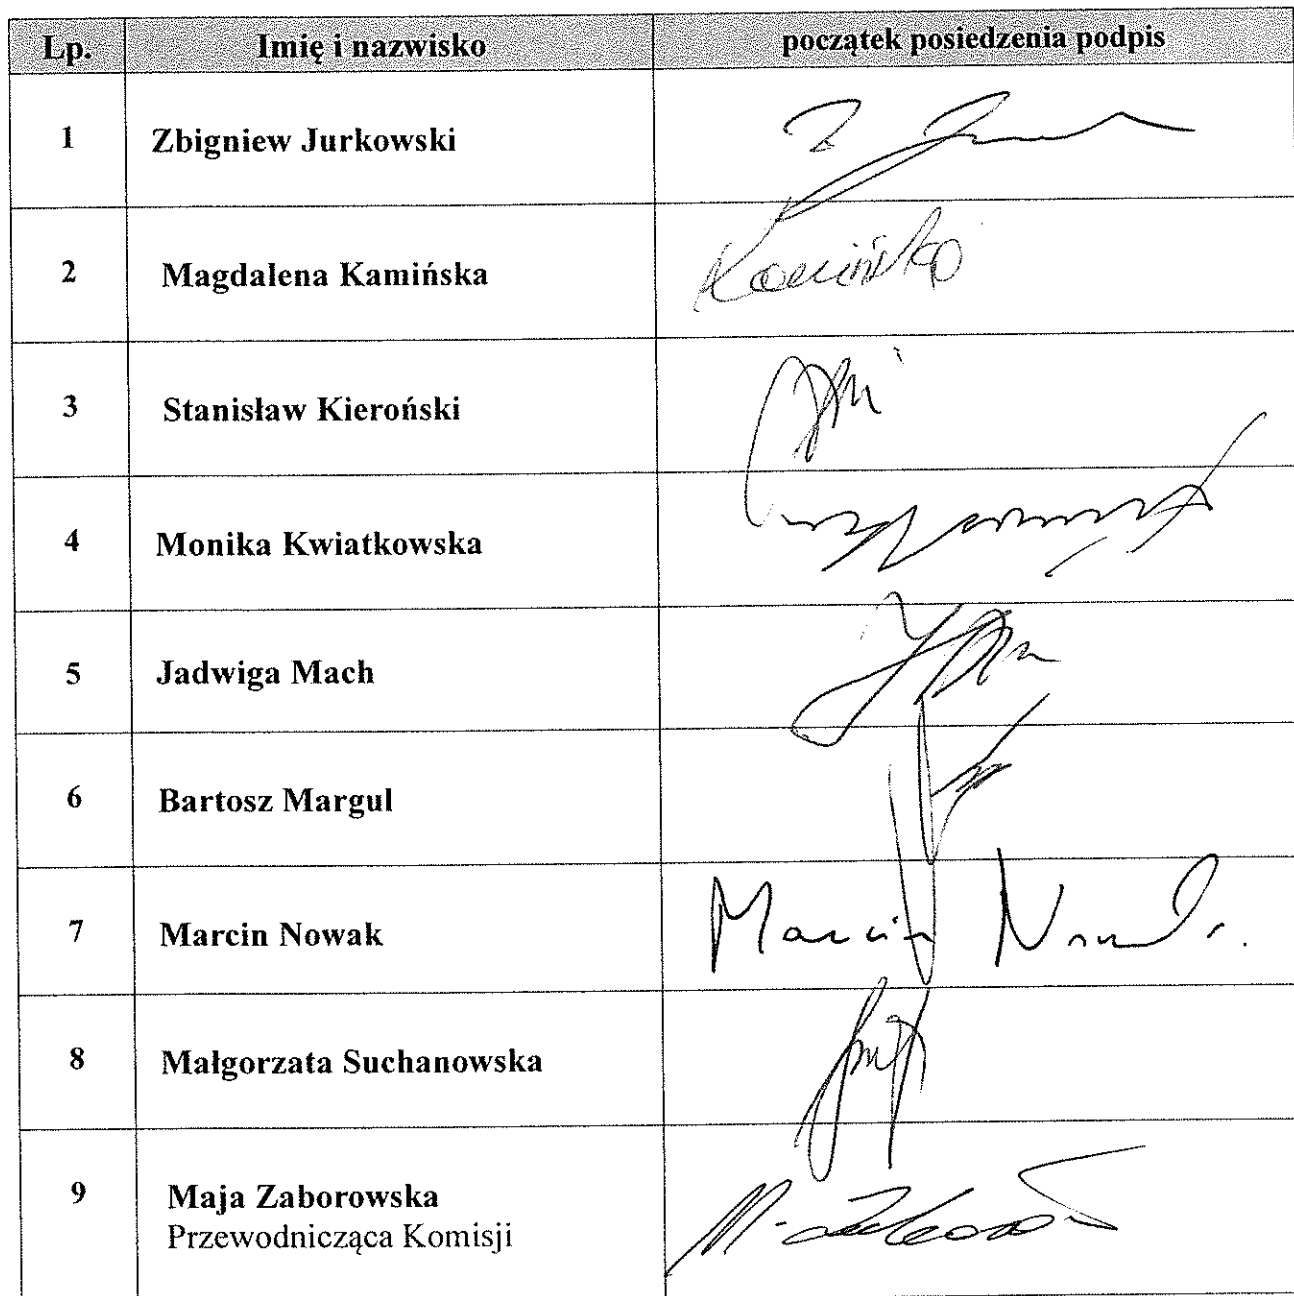 Lp. Imię i nazwisko początek posiedzenia podpis
1 Zbigniew Jurkowski
2 Magdalena Kamińska Kamińska
3 Stanisław Kieroński
4 Monika Kwiatkowska
5 Jadwiga Mach
6 Bartosz Margul
7 Marcin Nowak Marcin Nowak
8 Małgorzata Suchanowska
9 Maja Zaborowska
Przewodnicząca Komisji